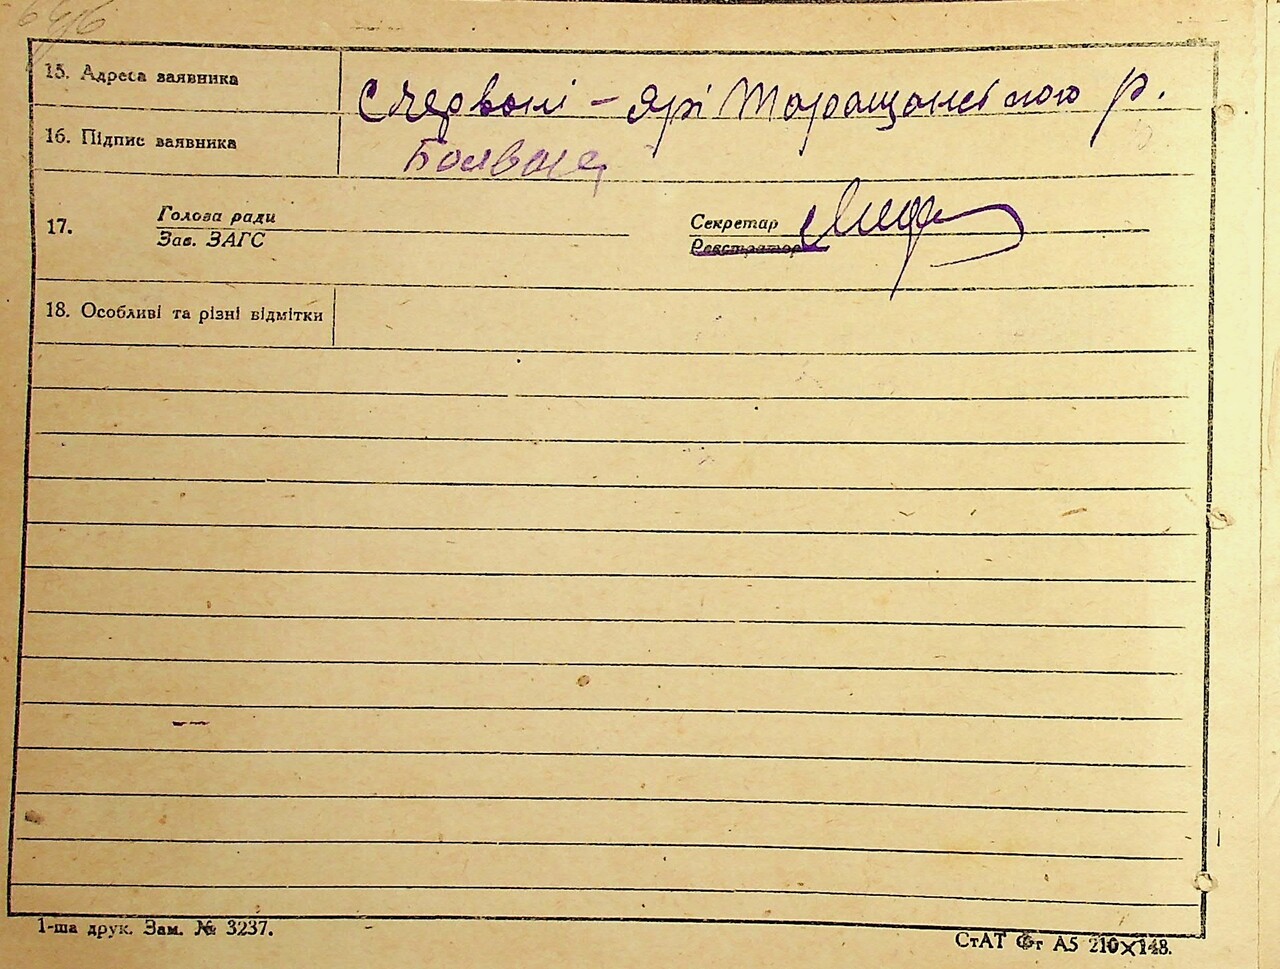 15. Адреса заявника
с Червоні - Ярі Таращанського р.
16. Підпис заявника
17.
Голова ради
Зав. ЗАГС
Секретар
Реєстратор
18. Особливі та різні відмітки
1-ша друк. Зам. № 3237.
СтАТ Фг А5 210×148.